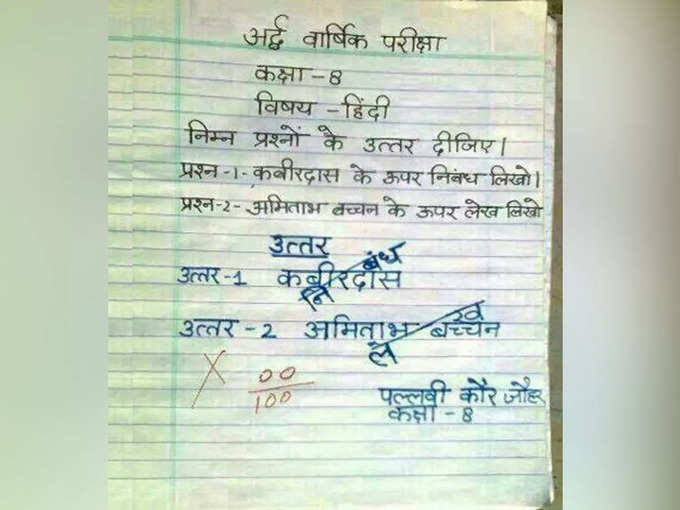 अर्द्ध वार्षिक परीक्षा
कक्षा - 8
विषय - हिंदी
निम्न प्रश्नों के उत्तर दीजिए।
प्रश्न -1- कबीरदास के ऊपर निबंध लिखो।
प्रश्न-2- अमिताभ बच्चन के ऊपर लेख लिखो
उत्तर
उत्तर-1 कबीरदास
निबंध
उत्तर - 2 अमिताभ बच्चन
लेख
X 00
100
पल्लवी कौर जौहर
कक्षा - 8